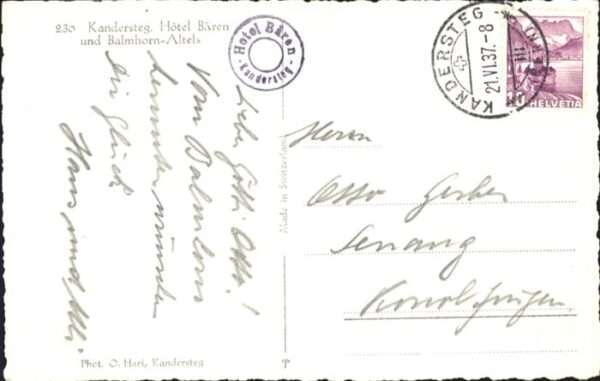 230 Kandersteg. Hôtel Bären
und Balmhorn-Altels
Hôtel Bären
- Kandersteg -
KANDERSTEG
21.VI.37.-8
HELVETIA
10
Lieber Götti Otto!
Vom Balmhorn
herunter wünschen
Dir Glück
Hans und
Made in Switzerland
Herrn
Otto Gerber
Senang
Konolfingen
Phot. O. Hari, Kandersteg